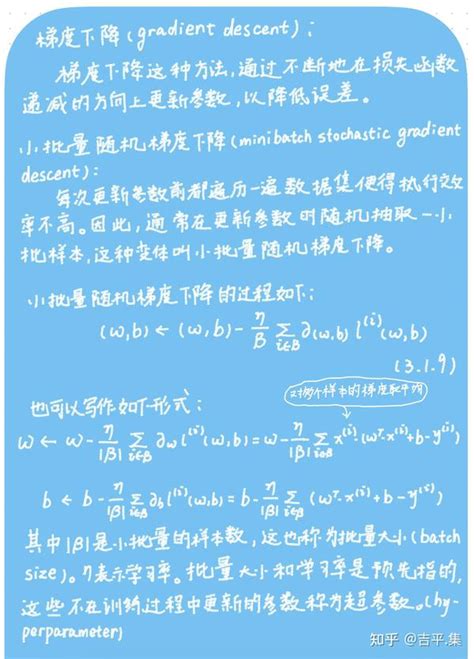 梯度下降(gradient descent):
梯度下降这种方法,通过不断地在损失函数
递减的方向上更新参数,以降低误差。
小批量随机梯度下降(minibatch stochastic gradient
descent):
每次更新参数前都遍历一遍数据集使得执行效
率不高。因此,通常在更新参数时随机抽取一小
批样本,这种变体叫小批量随机梯度下降。
小批量随机梯度下降的过程如下:
(w,b) ← (w,b) - η/β ∑i∈B ∂(w,b) l^(i)(w,b)
(3.1.9)
对每个样本的梯度取平均
也可以写作如下形式:
w ← w - η/|β| ∑i∈B ∂w l^(i)(w,b) = w - η/|β| ∑i∈B x^(i)(w^T x^(i) + b - y^(i))
b ← b - η/|β| ∑i∈B ∂b l^(i)(w,b) = b - η/|β| ∑i∈B (w^T x^(i) + b - y^(i))
其中|β|是小批量的样本数,这也称为批量大小(batch
size)。η表示学习率。批量大小和学习率是预先指的,
这些不在训练过程中更新的参数称为超参数。(hy-
perparameter)
知乎 @吉平.集